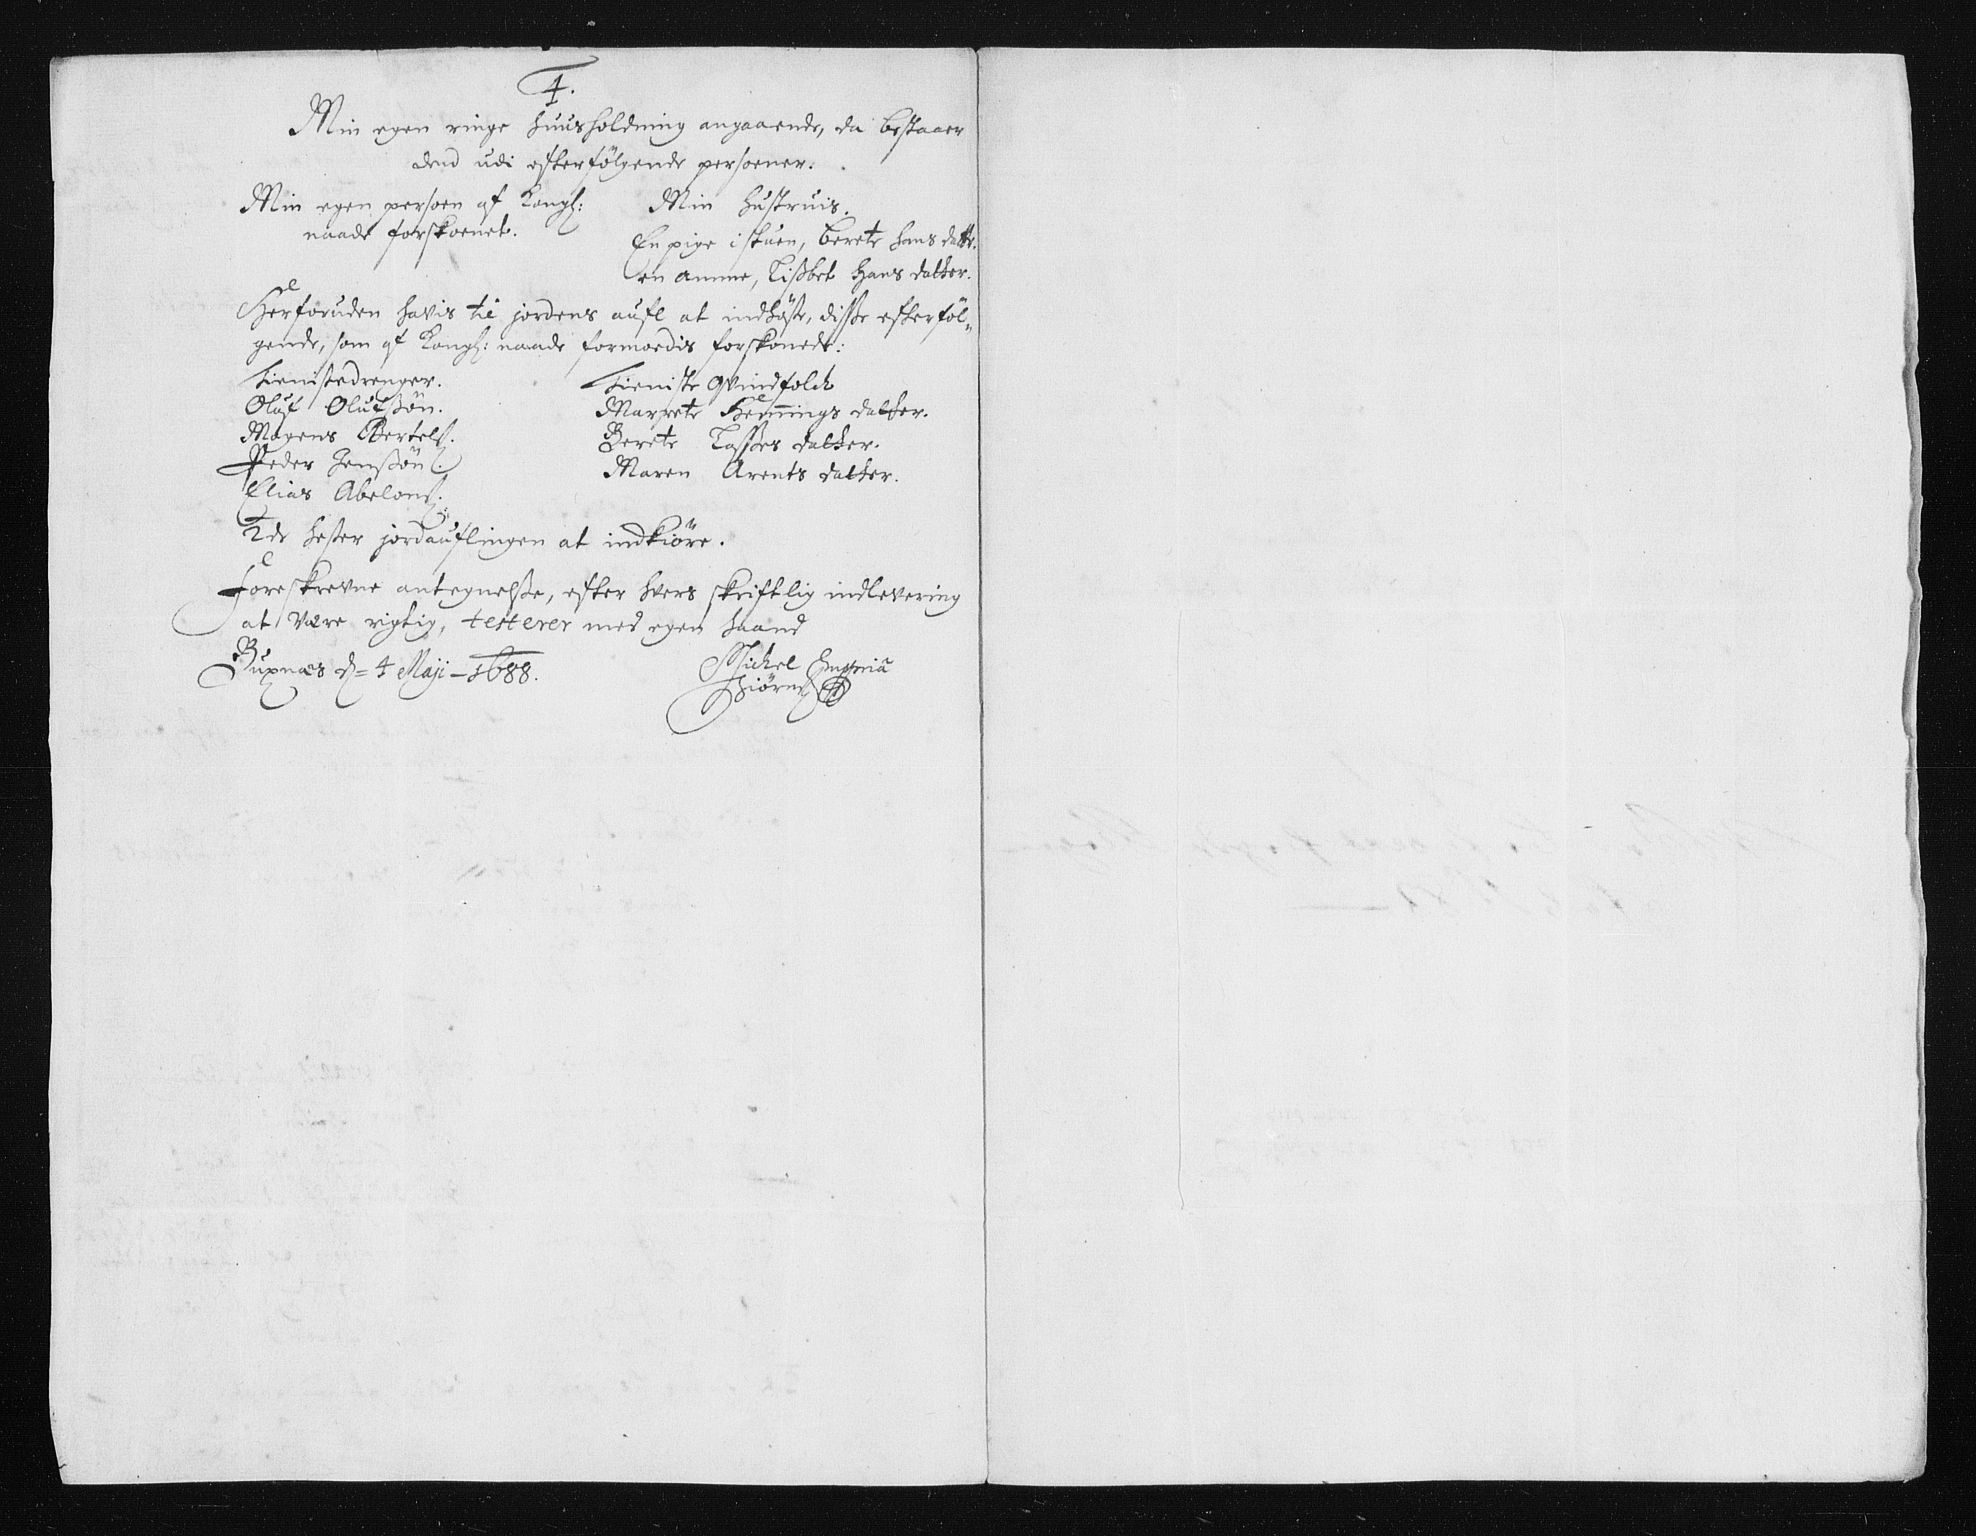 4.
Min egen ringe huusholdning angaaende, da bestaaer
dend udi efterfölgende persoener.
Min egen persoen af Kongl:
naade forskoenet.
Min hustruis.
En pige i stuen, Berete Hans datter.
en amme, Lisbet Hans datter.
Herforuden havis til jordens aufl at indhöste, disse efterföl-
gende, som af Kongl: naade formoedis forskonede:
Tienistedrenger.
Oluf Olufsön.
Mogens Bertels.
Peder Jensön.
Elias Abelons.
Tieniste Qvindfolck
Marrete Hemmings datter.
Berete Lasses datter.
Maren Arents datter.
2de hester jordauflingen at indkiöre.
Foreskrevne antegnelse, efter hvers skriftlig indlevering
at være rigtig, testerer med egen haand
Buxnæs d= 4 Maji - 1688.
Michel
Biörns